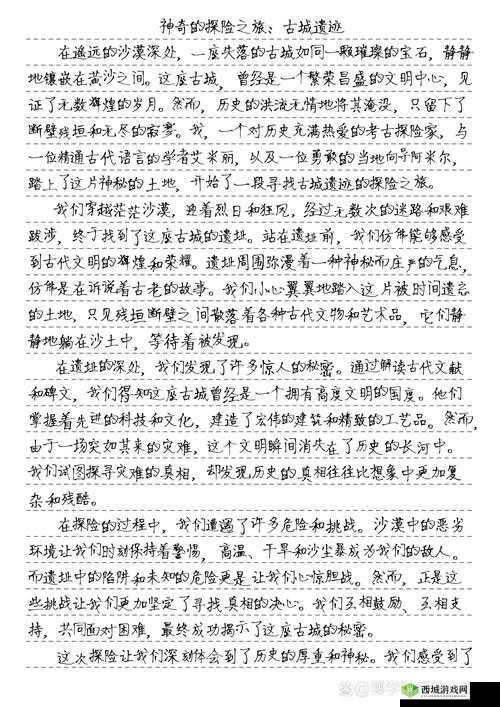 神奇的探险之旅：古城遗迹
在遥远的沙漠深处，一座失落的古城如同一颗璀璨的宝石，静静
地镶嵌在黄沙之间。这座古城，曾经是一个繁荣昌盛的文明中心，见
证了无数辉煌的岁月。然而，历史的洪流无情地将其淹没，只留下了
断壁残垣和无尽的寂寥。我，一个对历史充满热爱的考古探险家，与
一位精通古代语言的学者艾米丽，以及一位勇敢的当地向导阿米尔，
踏上了这片神秘的土地，开始了一段寻找古城遗迹的探险之旅。
我们穿越茫茫沙漠，迎着烈日和狂风，经过无数次的迷路和艰难
跋涉，终于找到了这座古城的遗址。站在遗址前，我们仿佛能够感受
到古代文明的辉煌和荣耀。遗址周围弥漫着一种神秘而庄严的气息，
仿佛是在诉说着古老的故事。我们小心翼翼地踏入这片被时间遗忘
的土地，只见残垣断壁之间散落着各种古代文物和艺术品，它们静
静地躺在沙土中，等待着被发现。
在遗址的深处，我们发现了许多惊人的秘密。通过解读古代文献
和碑文，我们得知这座古城曾经是一个拥有高度文明的国度。他们
掌握着先进的科技和文化，建造了宏伟的建筑和精致的工艺品。然而，
由于一场突如其来的灾难，这个文明瞬间消失在了历史的长河中。
我们试图探寻灾难的真相，却发现历史的真相往往比想象中更加复
杂和残酷。
在探险的过程中，我们遭遇了许多危险和挑战。沙漠中的恶劣
环境让我们时刻保持着警惕，高温、干旱和沙尘暴成为我们的敌人。
而遗址中的陷阱和未知的危险更是让我们心惊胆战。然而，正是这
些挑战让我们更加坚定了寻找真相的决心。我们互相鼓励、互相支
持，共同面对困难，最终成功揭示了这座古城的秘密。
这次探险让我们深刻体会到了历史的厚重和神秘。我们感受到了
西城游戏网